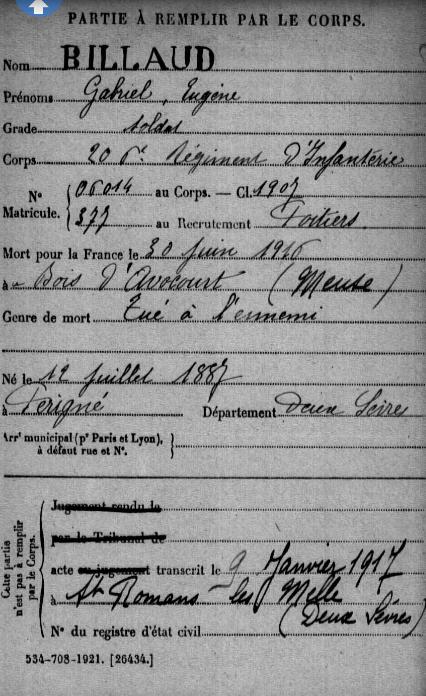 PARTIE À REMPLIR PAR LE CORPS.
Nom BILLAUD
Prénoms Gabriel, Eugène
Grade soldat
Corps 206e Régiment d'Infanterie
N° Matricule. { 06014 au Corps. — Cl. 1907
377 au Recrutement Poitiers.
Mort pour la France le 30 juin 1916
à Bois d'Avocourt (Meuse)
Genre de mort Tué à l'ennemi
Né le 12 juillet 1887
à Périgné Département Deux Sèvres
Arrt municipal (pr Paris et Lyon), à défaut rue et N°. }
Cette partie n'est pas à remplir par le Corps.
Jugement rendu le
par le Tribunal de
acte ou jugement transcrit le 9 Janvier 1917
à St Romans-les Melle
(Deux Sèvres)
N° du registre d'état civil
534-708-1921. [26434.]